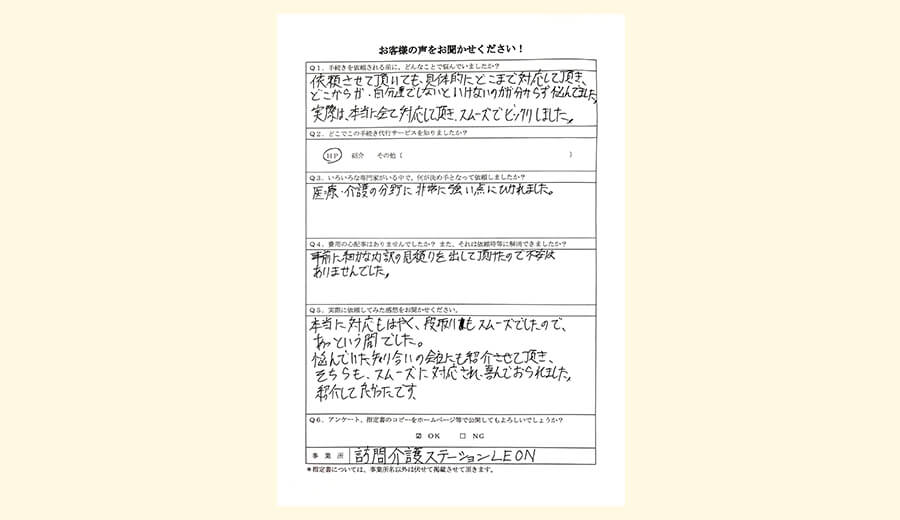 お客様の声をお聞かせください！
Q1．手続きを依頼される前に、どんなことで悩んでいましたか？
依頼させて頂いても、具体的にどこまで対応して頂き、
どこからが・自分達でしないといけないのかが分からず悩んでました。
実際は、本当に全て対応して頂き、スムーズでビックリしました。
Q2．どこでこの手続き代行サービスを知りましたか？
HP 紹介 その他（ ）
Q3．いろいろな専門家がいる中で、何が決め手となって依頼しましたか？
医療・介護の分野に非常に強い点にひかれました。
Q4．費用の心配事はありませんでしたか？ また、それは依頼時等に解消できましたか？
事前に細かな内訳の見積りを出して頂けたので不安は
ありませんでした。
Q5．実際に依頼してみた感想をお聞かせください。
本当に対応もはやく、段取りもスムーズでしたので、
あっという間でした。
悩んでいた知り合いの会社にも紹介させて頂き、
そちらも、スムーズに対応され、喜んでおられました。
紹介して良かったです。
Q6．アンケート、指定書のコピーをホームページ等で公開してもよろしいでしょうか？
☑ OK □ NG
事業所 訪問介護ステーションLEON
＊指定書については、事業所名以外は伏せて掲載させて頂きます。